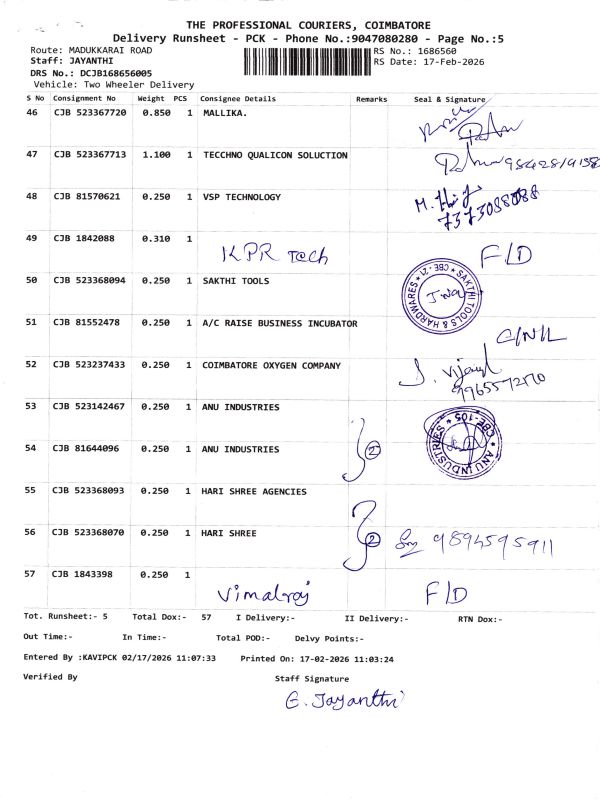 THE PROFESSIONAL COURIERS, COIMBATORE
Delivery Runsheet - PCK - Phone No.:9047080280 - Page No.:5
Route: MADUKKARAI ROAD RS No.: 1686560
Staff: JAYANTHI RS Date: 17-Feb-2026
DRS No.: DCJB168656005
Vehicle: Two Wheeler Delivery
S No Consignment No Weight PCS Consignee Details Remarks Seal & Signature
46 CJB 523367720 0.850 1 MALLIKA.
47 CJB 523367713 1.100 1 TECCHNO QUALICON SOLUCTION
48 CJB 81570621 0.250 1 VSP TECHNOLOGY
7373088088
49 CJB 1842088 0.310 1
KPR Tech F/D
50 CJB 523368094 0.250 1 SAKTHI TOOLS
SAKTHI TOOLS & HARDWARES ★ CBE-21 ★
51 CJB 81552478 0.250 1 A/C RAISE BUSINESS INCUBATOR
52 CJB 523237433 0.250 1 COIMBATORE OXYGEN COMPANY
53 CJB 523142467 0.250 1 ANU INDUSTRIES
54 CJB 81644096 0.250 1 ANU INDUSTRIES 2
★ ANU INDUSTRIES ★ CBE-105
55 CJB 523368093 0.250 1 HARI SHREE AGENCIES
56 CJB 523368070 0.250 1 HARI SHREE 2 9894595911
57 CJB 1843398 0.250 1
Vimalraj F/D
Tot. Runsheet:- 5 Total Dox:- 57 I Delivery:- II Delivery:- RTN Dox:-
Out Time:- In Time:- Total POD:- Delvy Points:-
Entered By :KAVIPCK 02/17/2026 11:07:33 Printed On: 17-02-2026 11:03:24
Verified By Staff Signature
G. Jayanthi